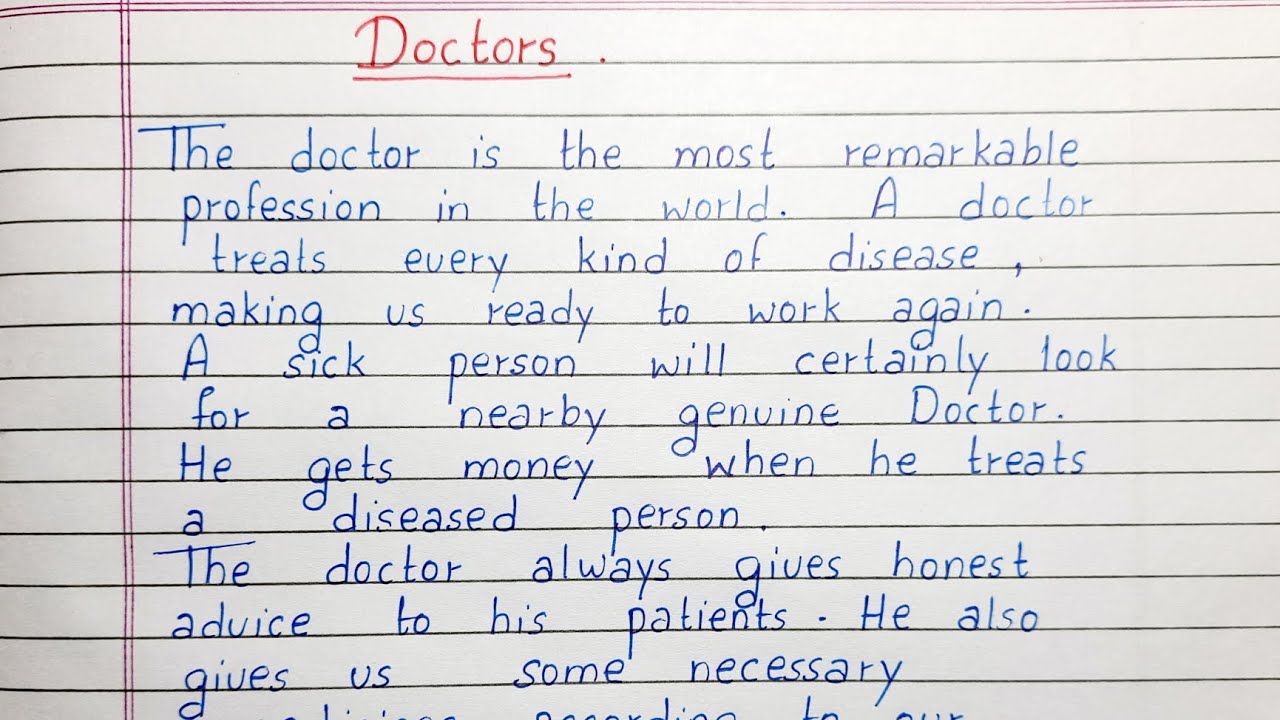 Doctors.
The doctor is the most remarkable
profession in the world. A doctor
treats every kind of disease,
making us ready to work again.
A sick person will certainly look
for a nearby genuine Doctor.
He gets money when he treats
a diseased person.
The doctor always gives honest
advice to his patients. He also
gives us some necessary
according to our